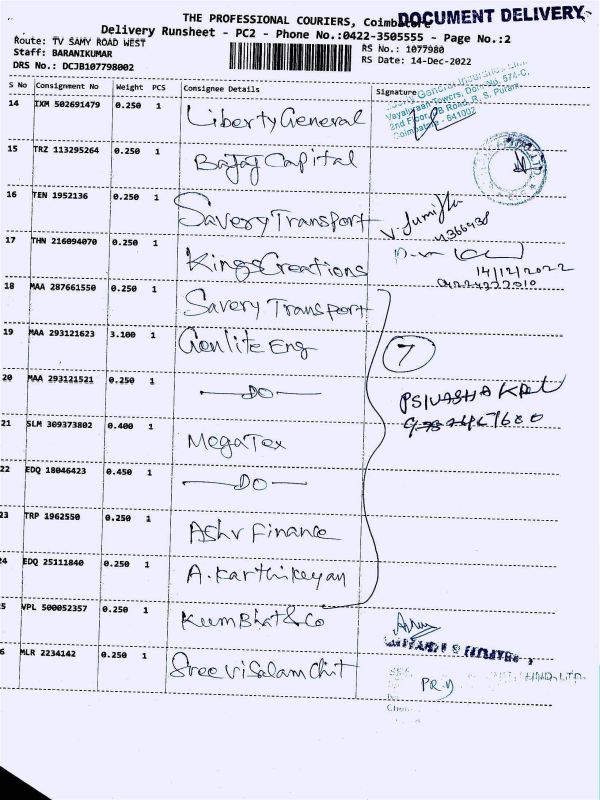 THE PROFESSIONAL COURIERS, Coimbatore
DOCUMENT DELIVERY
Delivery Runsheet - PC2 - Phone No.:0422-3505555 - Page No.:2
Route: TV SAMY ROAD WEST
RS No.: 1077980
Staff: BARANIKUMAR
RS Date: 14-Dec-2022
DRS No.: DCJB107798002
S No Consignment No Weight PCS Consignee Details Signature
14 IXM 502691479 0.250 1 Liberty General
Vayalpraan Towers, Door No. 574-C,
2nd Floor, DB Road, R. S. Puram,
Coimbatore - 641002
15 TRZ 113295264 0.250 1 Bajaj Capital
16 TEN 1952136 0.250 1 Savery Transport
17 THN 216094070 0.250 1 Kings Creations
14/12/2022
18 MAA 287661550 0.250 1 Savery Transport
19 MAA 293121623 3.100 1 Genlite Eng
7
20 MAA 293121521 0.250 1 DO
21 SLM 309373802 0.400 1 MegaTex
22 EDQ 18046423 0.450 1 DO
23 TRP 1962550 0.250 1 Ashv Finance
24 EDQ 25111840 0.250 1 A. Karthikeyan
5 VPL 500052357 0.250 1 Kumbhat & Co
6 MLR 2234142 0.250 1 Sree Visalam Chit